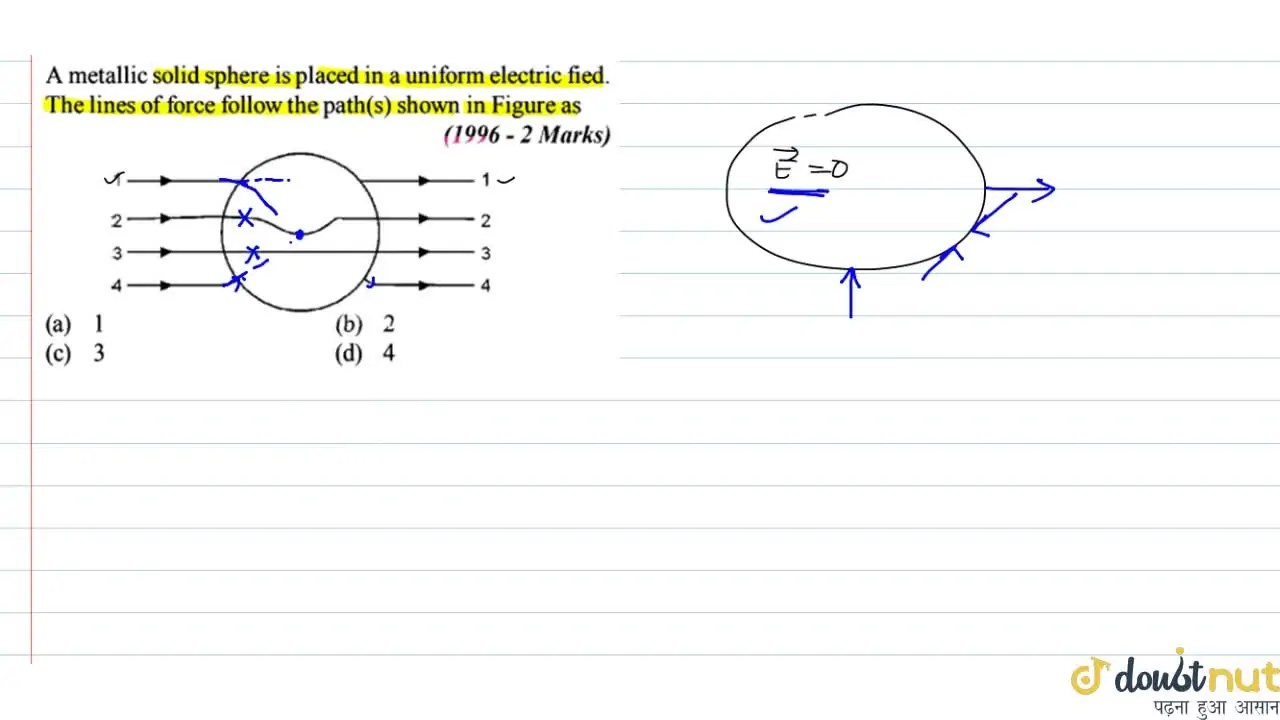 A metallic solid sphere is placed in a uniform electric fied.
The lines of force follow the path(s) shown in Figure as
(1996 - 2 Marks)
1 1
2 2
3 3
4 4
(a) 1 (b) 2
(c) 3 (d) 4
E = 0
doubtnut
पढ़ना हुआ आसान